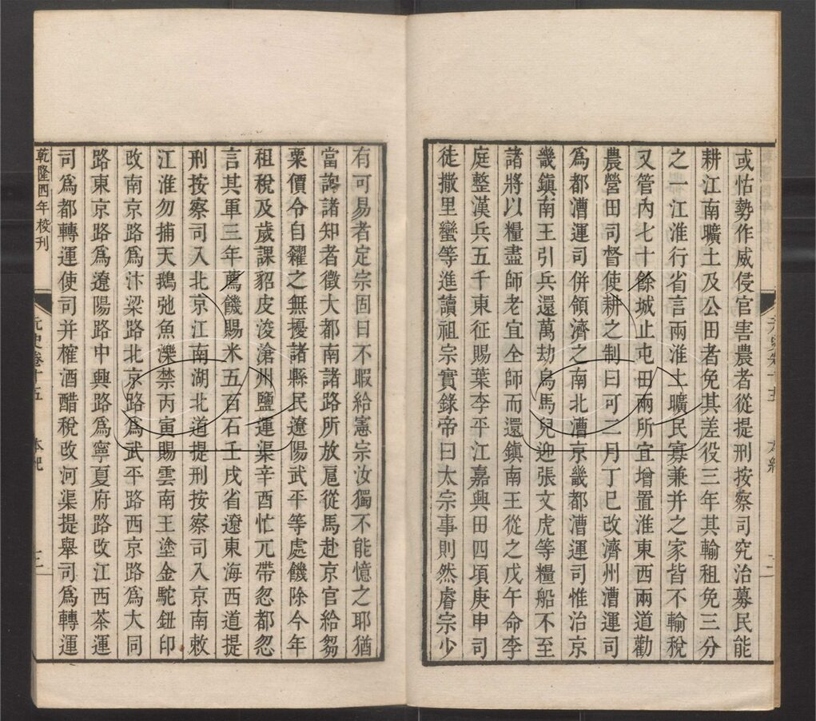 或怙勢作威侵官害農者從提刑按察司究治募民能
耕江南曠土及公田者免其差役三年其輸租免三分
之一江淮行省言兩淮土曠民寡兼并之家皆不輸稅
又管內七十餘城止屯田兩所宜增置淮東西兩道勸
農營田司督使耕之制曰可二月丁巳改濟州漕運司
爲都漕運司併領濟之南北漕京畿都漕運司惟治京
畿鎮南王引兵還萬劫烏馬兒迎張文虎等糧船不至
諸將以糧盡師老宜全師而還鎮南王從之戊午命李
庭整漢兵五千東征賜葉李平江嘉興田四頃庚申司
徒撒里蠻等進讀祖宗實錄帝曰太宗事則然睿宗少
有可易者定宗固日不暇給憲宗汝獨不能憶之耶猶
當詢諸知者徵大都南諸路所放扈從馬赴京官給芻
粟價令自糴之無擾諸縣民遼陽武平等處饑除今年
租稅及歲課貂皮浚滄州鹽運渠辛酉忙兀帶忽都忽
言其軍三年薦饑賜米五百石壬戌省遼東海西道提
刑按察司入北京江南湖北道提刑按察司入京南敕
江淮勿捕天鵝弛魚濼禁丙寅賜雲南王塗金駝鈕印
改南京路爲汴梁路北京路爲武平路西京路爲大同
路東京路爲遼陽路中興路爲寧夏府路改江西茶運
司爲都轉運使司并榷酒醋稅改河渠提舉司爲轉運
乾隆四年校刊
元史卷十五
本紀